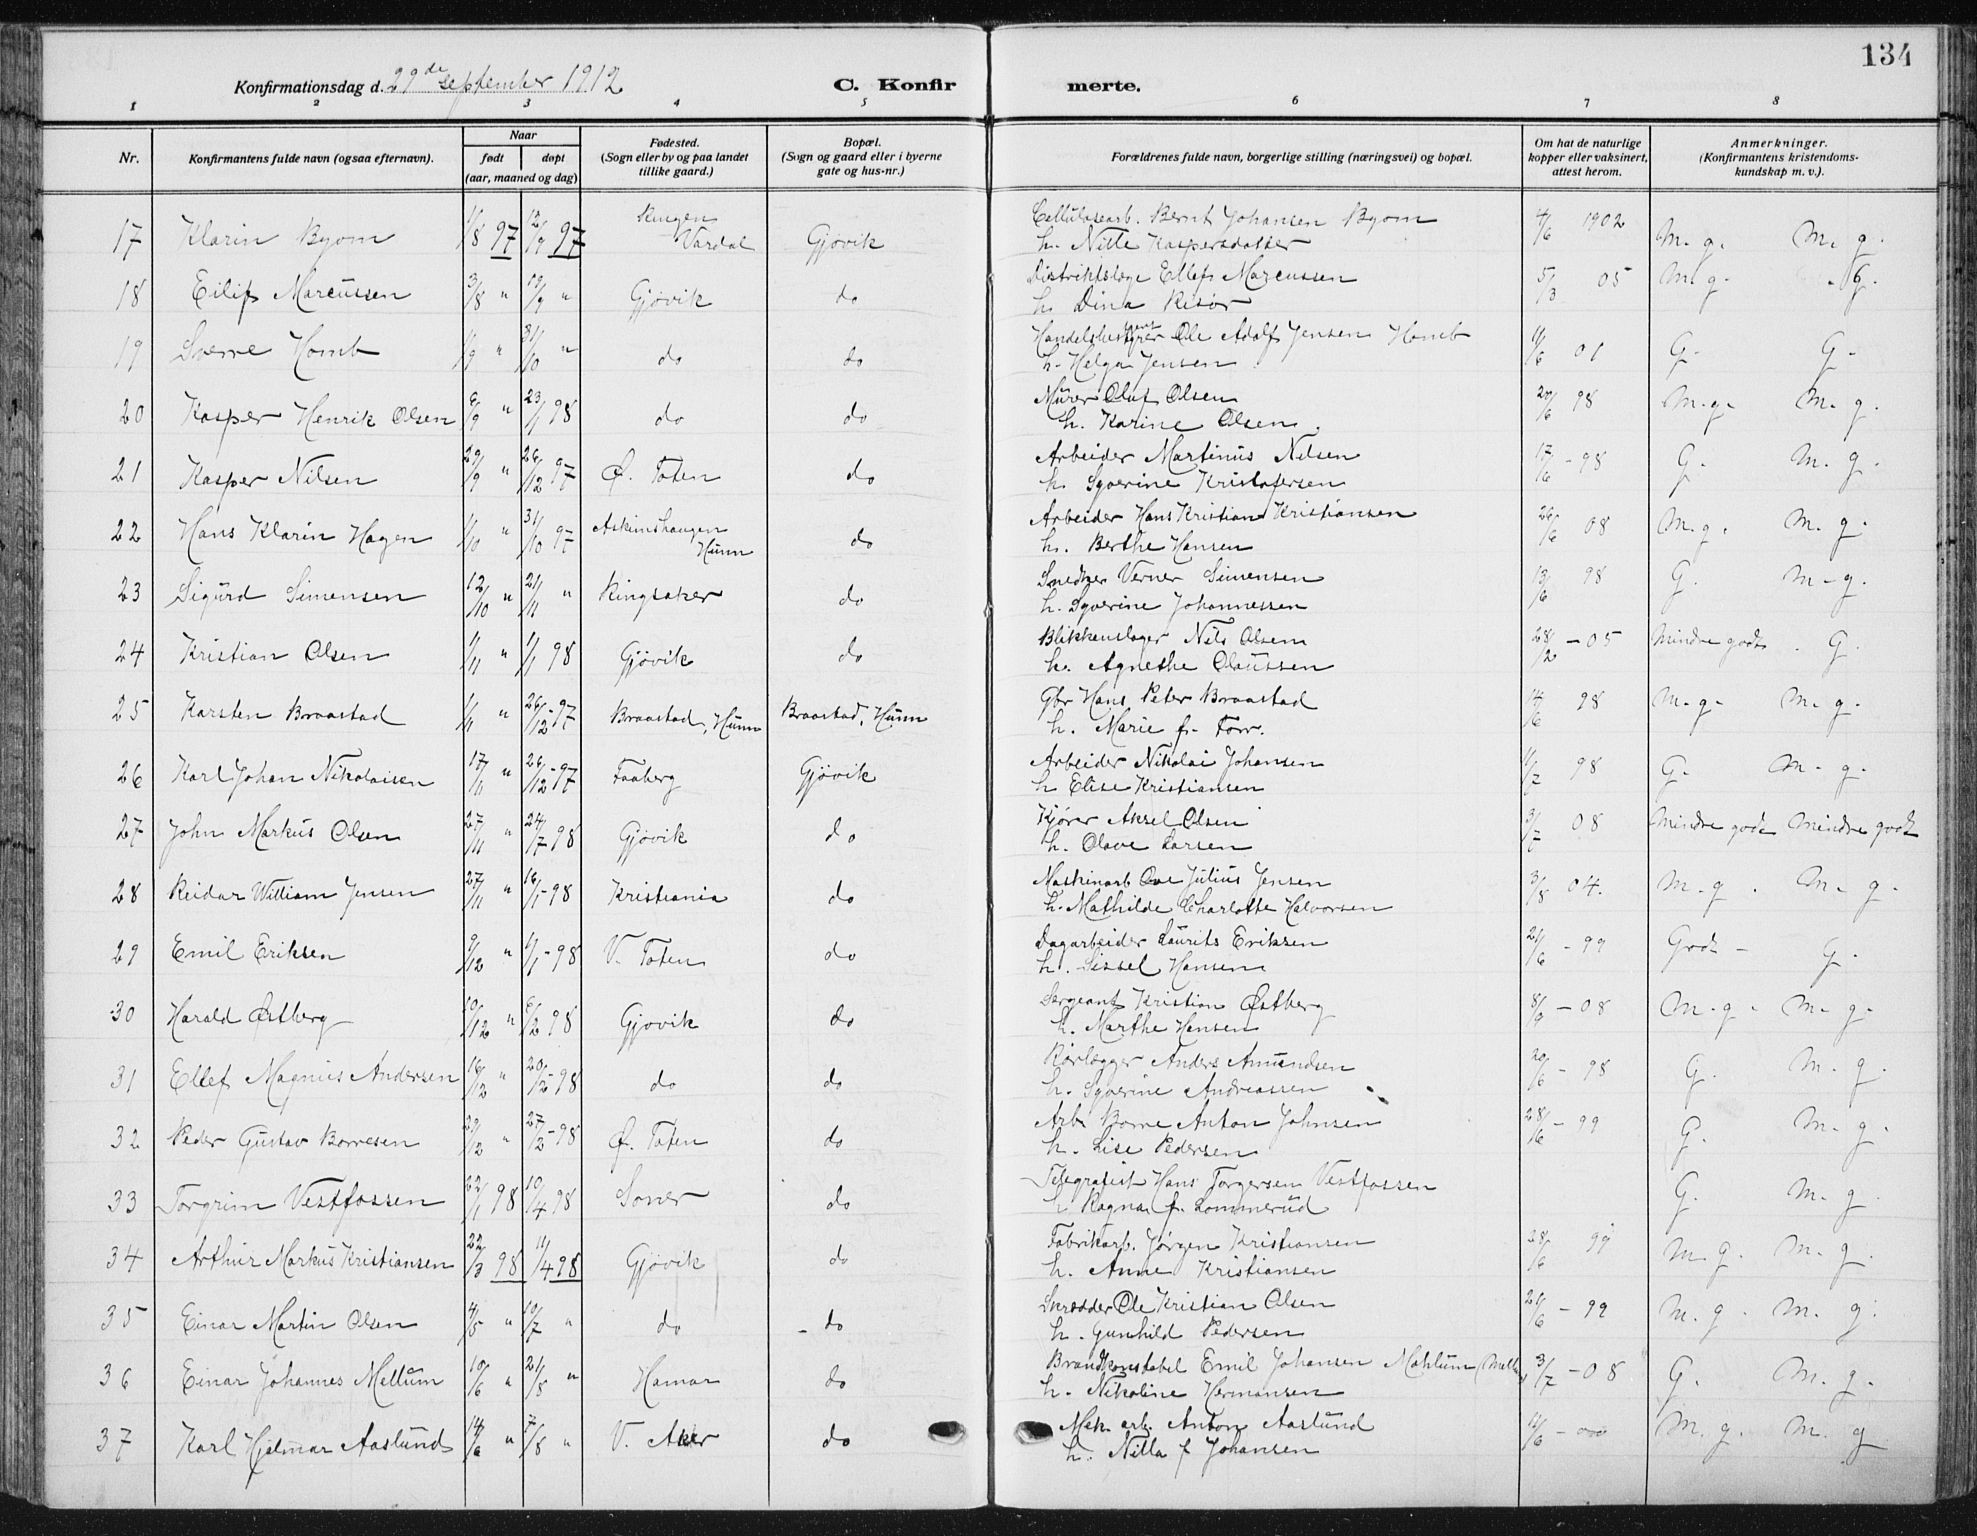 134
Konfirmationsdag d. 29de september 1912. C. Konfirmerte.
1 2 3 4 5 6 7 8
Nr. Konfirmantens fulde navn (ogsaa efternavn). Naar født døpt (aar, maaned og dag) Fødested. (Sogn eller by og paa landet tillike gaard.) Bopæl. (Sogn og gaard eller i byerne gate og hus-nr.) Forældrenes fulde navn, borgerlige stilling (næringsvei) og bopæl. Om hat de naturlige kopper eller vaksinert, attest herom. Anmerkninger. (Konfirmantens kristendoms-kundskap m. v.).
17 Klarin Byom 1/8 97 12/9 97 Ringen Vardal Gjøvik Cellulosearb. Bernt Johansen Byom 4/6 1902 M. g. M. g.
h. Nille Kaspersdatter
18 Eilif Marcussen 3/8 " 19/9 " Gjøvik do Distriktslæge Ellef Marcussen 5/3 05 M g. G.
h. Dina Risør
19 Sverre Homb " 31/10 " do do Handelsbestyrer Ole Adolf Jensen Homb 01 G. G.
h. Helga Jensen
20 Kasper Henrik Olsen " 23/1 98 do do Murer Oluf Olsen 98 M. g. M. g.
h. Karine Olsen.
21 Kasper Nilsen 29/9 " 26/12 97 Ø. Toten do Arbeider Martinus Nilsen 17/6 - 98 G. M. g.
h. Syverine Kristofersen
22 Hans Klarin Hagen 1/10 " 31/10 97 Askimshaugen Hunn do Arbeider Hans Kristian Kristiansen 26/6 08 M. g. M. g.
h. Berthe Hansen
23 Sigurd Simensen 12/10 " 21/11 " Ringsaker do Snedker Verner Simensen 13/6 98 G. M - g.
h. Syverine Johannessen
24 Kristian Olsen 1/11 " 1/1 98 Gjövik do Blikkenslager Nils Olsen 28/2 - 05 Mindre godt. G.
h. Agnethe Olaussen
25 Karsten Braastad 1/11 " 26/12 - 97 Braastad, Hunn Braastad, Hunn Gbr Hans Peter Braastad 14/6 98 M. g. M. g.
h. Marie f. Torr.
26 Karl Johan Nikolaisen 17/11 " 26/12 - 97 Faaberg Gjövik Arbeider Nikolai Johansen 98 G. M. g.
h Elise Kristiansen
27 John Markus Olsen 27/11 " 24/7 98 Gjövik do Kjører Aksel Olsen 3/7 08 Mindre godt Mindre godt
h. Olave Larsen
28 Reidar William Jensen 27/11 " 16/1 - 98 Kristiania do Maskinarb Ove Julius Jensen 3/8 04. M. g. M. g.
h. Mathilde Charlotte Halvorsen
29 Emil Eriksen 9/12 " - 98 V. Toten do Dagarbeider Laurits Eriksen 21/6 - 99 Godt - G.
h. Sissel Hansen
30 Harald Østberg 10/12 " 6/2 98 Gjøvik do Sergeant Kristian Østberg - 08 M. g. M. g.
h. Marthe Hansen
31 Ellef Magnus Andersen 16/12 " 20/2 - 98 do do Rörlægger Anders Amundsen 29/6 - 98 G. M. g.
h. Syverine Andreassen
32 Peder Gustav Borresen 29/12 " 27/2 - 98 Ø. Toten do Arb. Borre Anton Johnsen 28/6 - 99 G. M. g.
h. Lise Pedersen
33 Torgrim Vestfossen 22/1 98 10/4 98 Soner do Telegrafist Hans Torgersen Vestfossen G. M. g.
h Ragna f. Lommerud
34 Arthur Markus Kristiansen 22/3 98 11/4 98 Gjövik do Fabrikarb. Jörgen Kristiansen 28/6 99 M. g. M. g.
h. Anne Kristiansen
35 Einar Martin Olsen 4/5 " 10/7 " do - do Skrædder Ole Kristian Olsen 21/6 - 99 M. g. M. g.
h. Gunhild Pedersen
36 Einar Johannes Mellum 19/6 " 21/8 " Hamar do Brandkonstabel Emil Johansen Mæhlum (Mellum) 3/7 - 08 G. M. g.
h. Nikoline Hermansen
37 Karl Hjelmar Aaslund 14/6 " 7/8 " V. Aker do Mek. arb. Anton Aaslund M. g. M. g
h. Nilla f Johansen